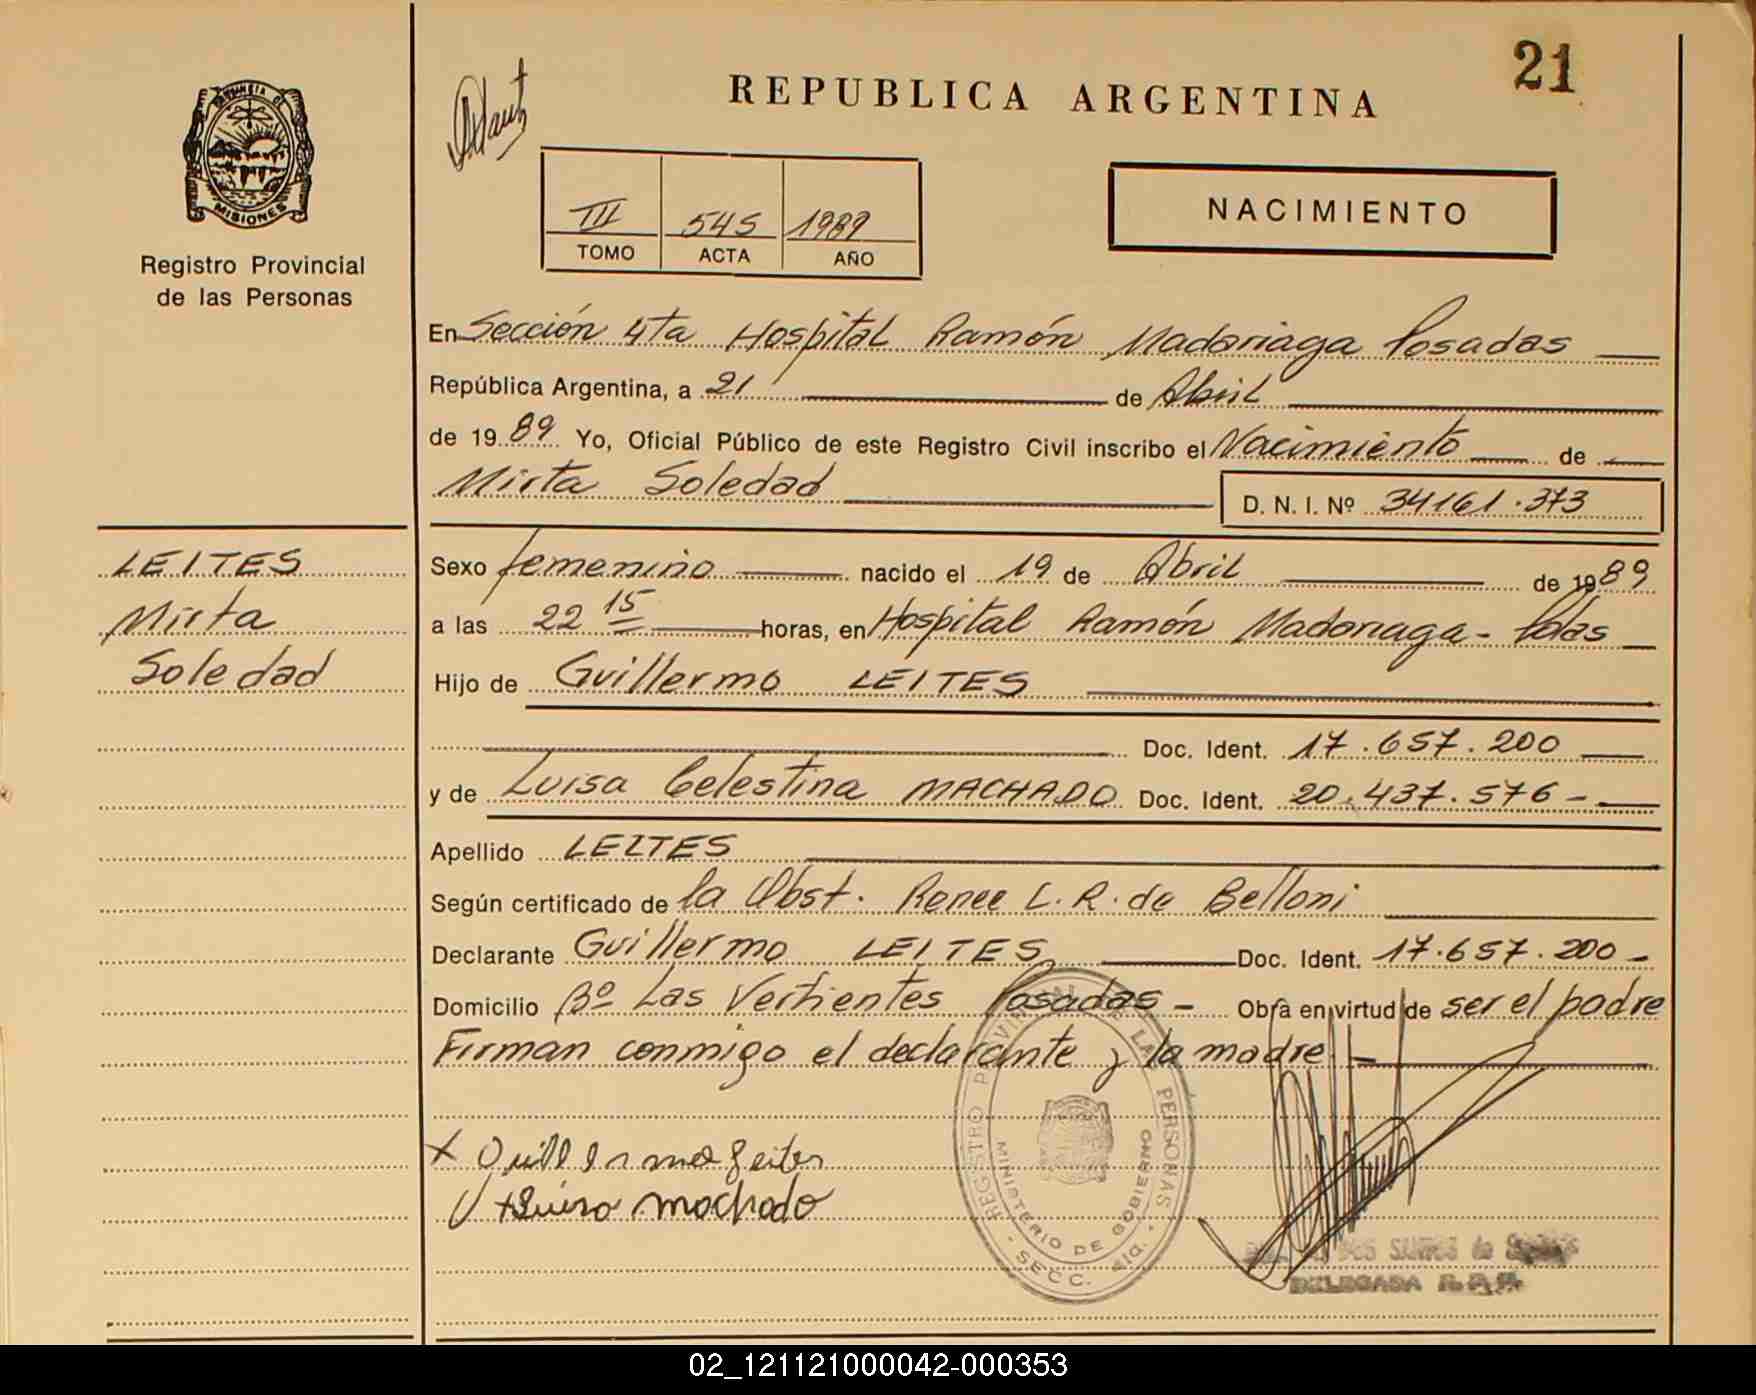 21
REPUBLICA ARGENTINA
MISIONES
Registro Provincial
de las Personas
III 545 1989
TOMO ACTA AÑO
NACIMIENTO
En Sección 4ta Hospital Ramón Madariaga Posadas
República Argentina, a 21 de Abril
de 1989 Yo, Oficial Público de este Registro Civil inscribo el Nacimiento de
Mirta Soledad D. N. I. Nº 34161.373
LEITES
Mirta
Soledad
Sexo femenino nacido el 19 de Abril de 1989
a las 22 15 horas, en Hospital Ramón Madariaga - Pdas
Hijo de Guillermo LEITES
Doc. Ident. 17.657.200
y de Luisa Celestina MACHADO Doc. Ident. 20.437.576 -
Apellido LEITES
Según certificado de la Obst. Renee L. R. de Belloni
Declarante Guillermo LEITES Doc. Ident. 17.657.200 -
Domicilio Bº Las Vertientes Posadas - Obra en virtud de ser el padre
Firman conmigo el declarante y la madre -
REGISTRO PROVINCIAL DE LAS PERSONAS
MINISTERIO DE GOBIERNO
SECC. 4ta.
x Guillermo Leites
x Luisa machado
DOS SANTOS de
DELEGADA R.P.P.
02_121121000042-000353